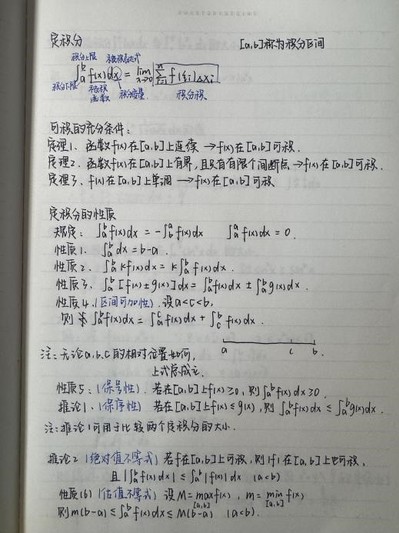 定积分 [a,b]称为积分区间
积分上限 被积表达式
∫ₐᵇ f(x)dx = lim λ→0 ∑ᵢ₌₁ⁿ f(ξᵢ)Δxᵢ
积分下限 被积函数 积分变量 积分和
可积的充分条件:
定理1. 函数f(x)在[a,b]上连续 → f(x)在[a,b]可积.
定理2. 函数f(x)在[a,b]上有界,且只有有限个间断点 → f(x)在[a,b]可积.
定理3. f(x)在[a,b]上单调 → f(x)在[a,b]可积
定积分的性质
规定: ∫ₐᵇ f(x)dx = -∫ᵇₐ f(x)dx ∫ₐᵃ f(x)dx = 0.
性质1. ∫ₐᵇ dx = b-a.
性质2. ∫ₐᵇ kf(x)dx = k∫ₐᵇ f(x)dx.
性质3. ∫ₐᵇ [f(x)±g(x)]dx = ∫ₐᵇ f(x)dx ± ∫ₐᵇ g(x)dx
性质4.(区间可加性). 设a<c<b,
则 ∫ₐᵇ f(x)dx = ∫ₐᶜ f(x)dx + ∫_c^b f(x)dx.
a c b
注:无论a,b,c的相对位置如何,
上式总成立.
性质5.(保号性) 若在[a,b]上f(x)≥0,则∫ₐᵇ f(x)dx≥0.
推论1.(保序性) 若在[a,b]上f(x)≤g(x),则∫ₐᵇ f(x)dx ≤ ∫ₐᵇ g(x)dx.
注:推论1可用于比较两个定积分的大小.
推论2(绝对值不等式) 若f在[a,b]上可积,则|f|在[a,b]上也可积,
且|∫ₐᵇ f(x)dx| ≤ ∫ₐᵇ |f(x)|dx (a<b)
性质(6)(估值不等式) 设M=max f(x), m=min f(x)
[a,b] [a,b]
则m(b-a) ≤ ∫ₐᵇ f(x)dx ≤ M(b-a) (a<b).